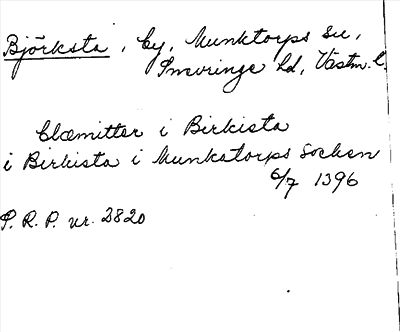 Björksta, by, Munktorps sn,
Snevringe hd, Västm. l.
Clemitter i Birkista
i Birkista i Munkatorps Socken
6/7 1396
P. R. P. nr. 2820